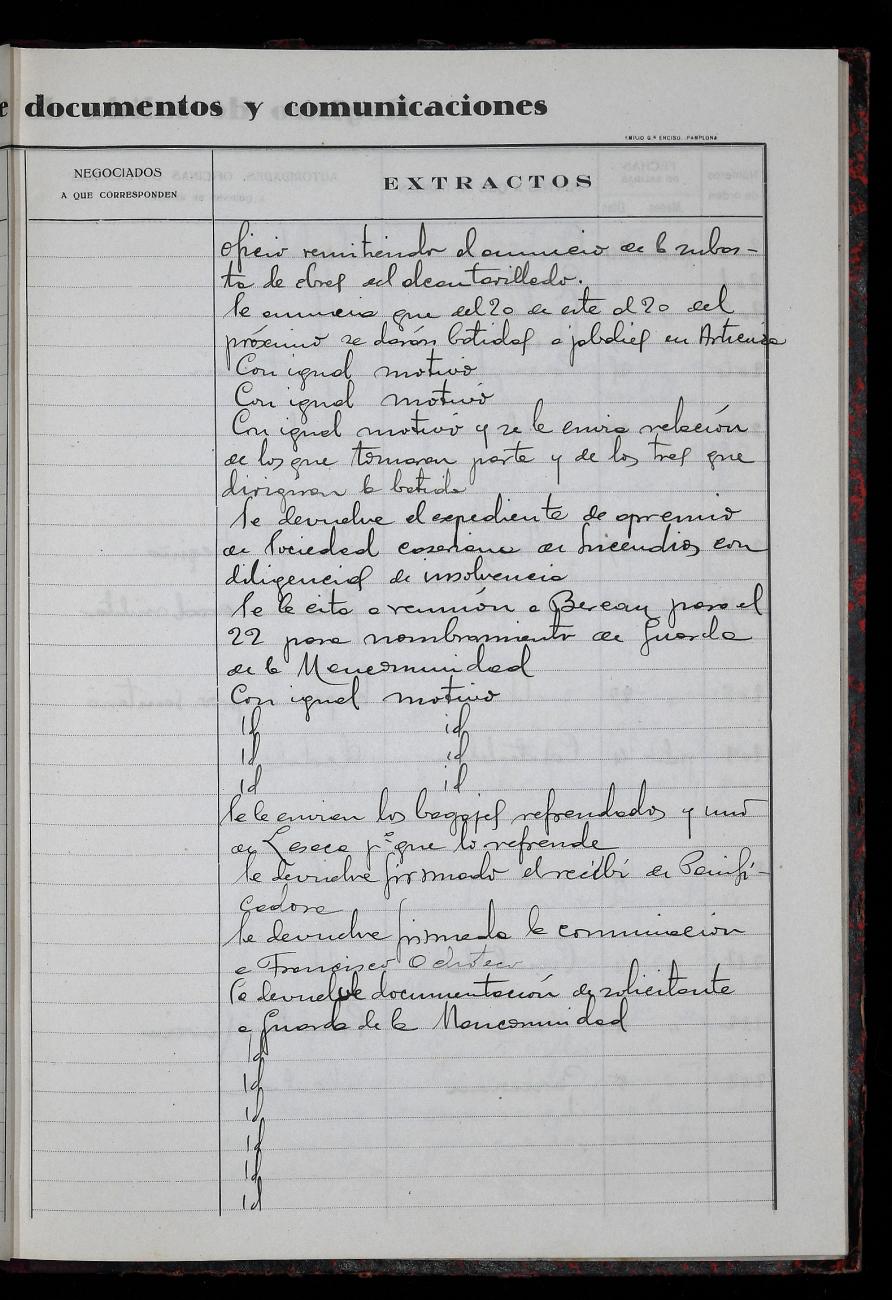 e documentos y comunicaciones
EMILIO G.ª ENCISO. PAMPLONA
NEGOCIADOS
A QUE CORRESPONDEN
EXTRACTOS
Oficio remitiendo el anuncio de la subas-
ta de obras del alcantarillado.
Se anuncia que del 20 de este al 20 del
próximo se darán batidas a jabalies en Artieda
Con igual motivo
Con igual motivo
Con igual motivo y se le envia relación
de los que tomaran parte y de los tres que
dirigiran la batida
Se devuelve el expediente de apremio
de Sociedad caseriana de Incendios con
diligencias de insolvencia
Se le cita a reunión a Berean para el
22 para nombramiento de Guarda
de la Mancomunidad
Con igual motivo
id id
id id
id id
Se le envian los bagajes refrendados y uno
de Lesaca pª que lo refrende
Se devuelve firmado el recibí de Panifi-
cadora
Se devuelve firmada la comunicación
a Francisco Ochoteco
Se devuelve documentación de solicitante
a Guarda de la Mancomunidad
id
id
id
id
id
id